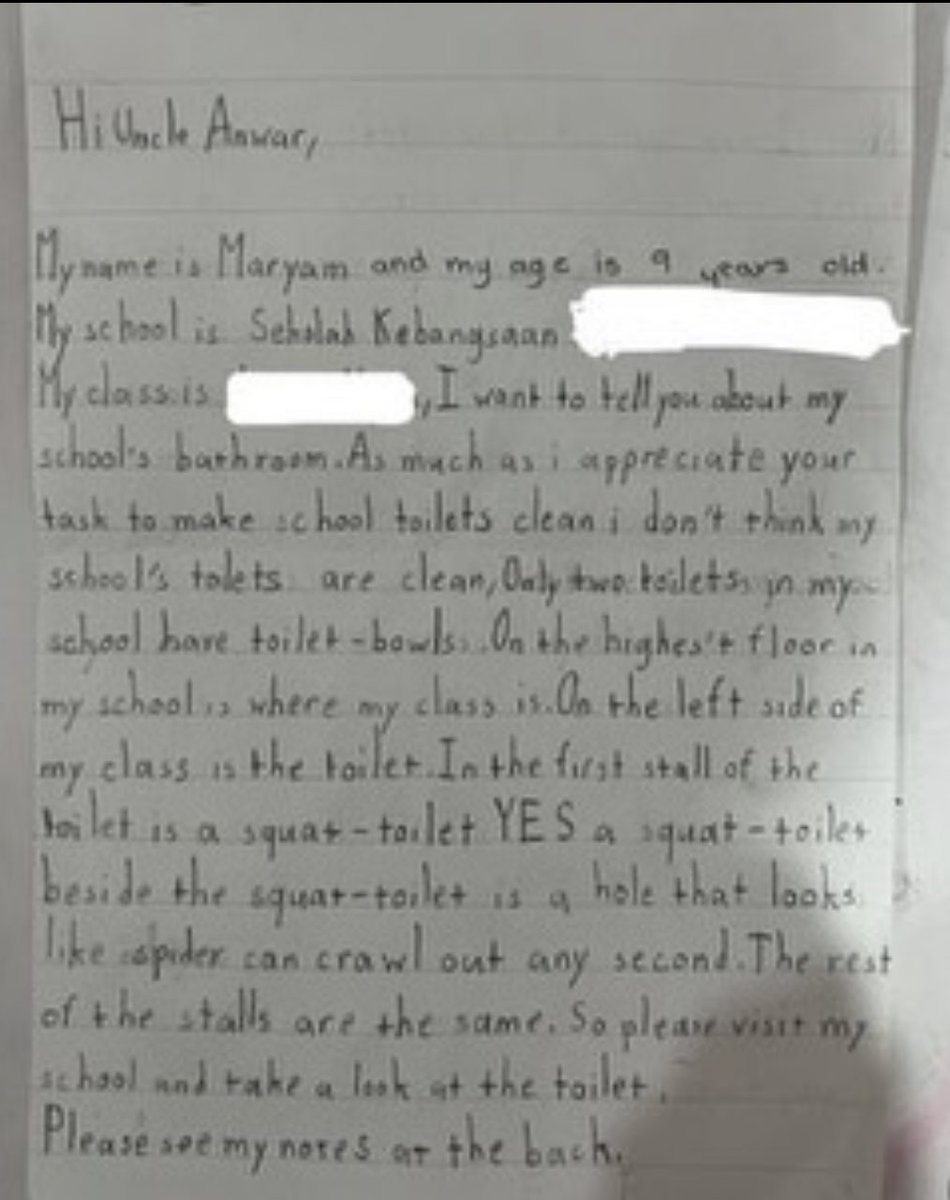 Hi Uncle Anwar,
My name is Maryam and my age is 9 years old.
My school is Sekolah Kebangsaan
My class is , I want to tell you about my
school's bathroom. As much as i appreciate your
task to make school toilets clean i don't think my
school's tolets are clean, Only two toilets in my
school have toilet-bowls. On the highes't floor in
my school is where my class is. On the left side of
my class is the toilet. In the first stall of the
toilet is a squat-toilet YES a squat-toilet
beside the squat-toilet is a hole that looks
like spider can crawl out any second. The rest
of the stalls are the same. So please visit my
school and take a look at the toilet.
Please see my notes at the back.